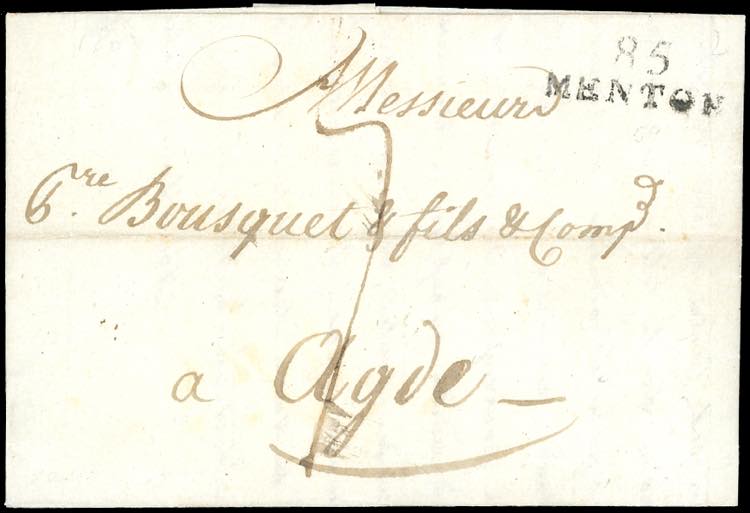 85
MENTON
Messieurs
P.re Bousquet & fils & Comp.e
a Agde
7